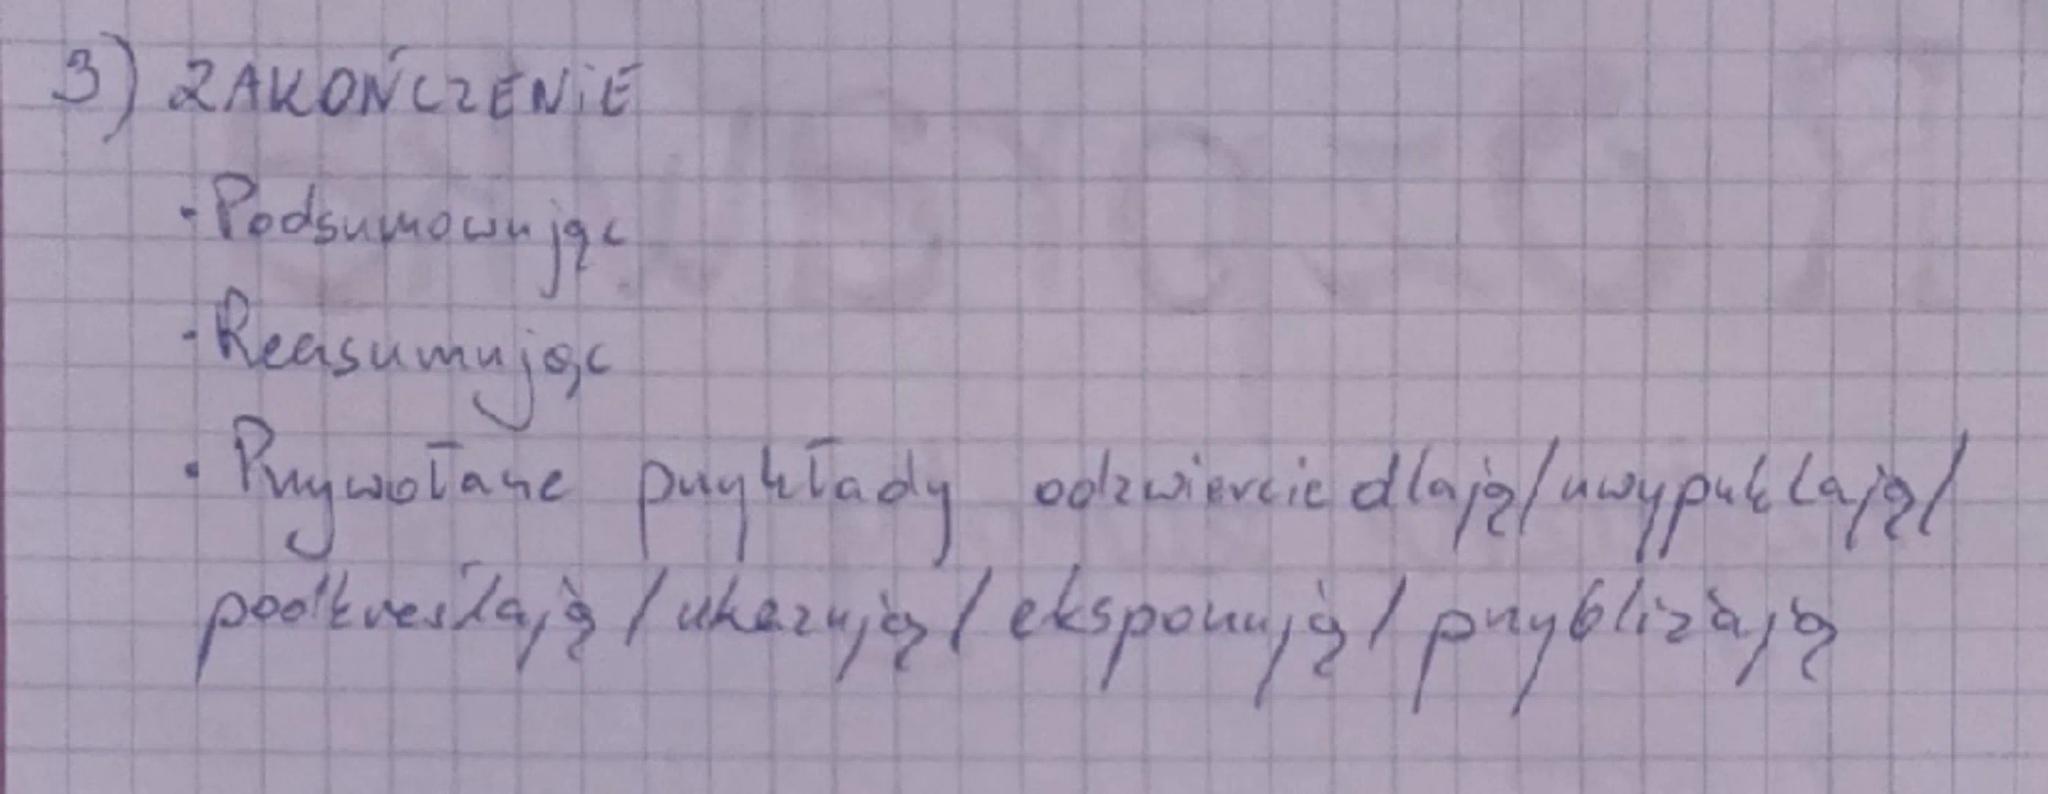 3) ZAKOŃCZENIE
· Podsumowując
· Reasumując
· Przywołane przykłady odzwierciedlają/uwypuklają/
podkreślają/ukazują/eksponują/przybliżają